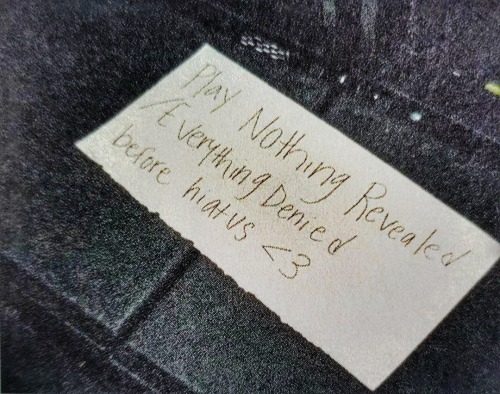 Play Nothing Revealed
/Everything Denied
before hiatus <3